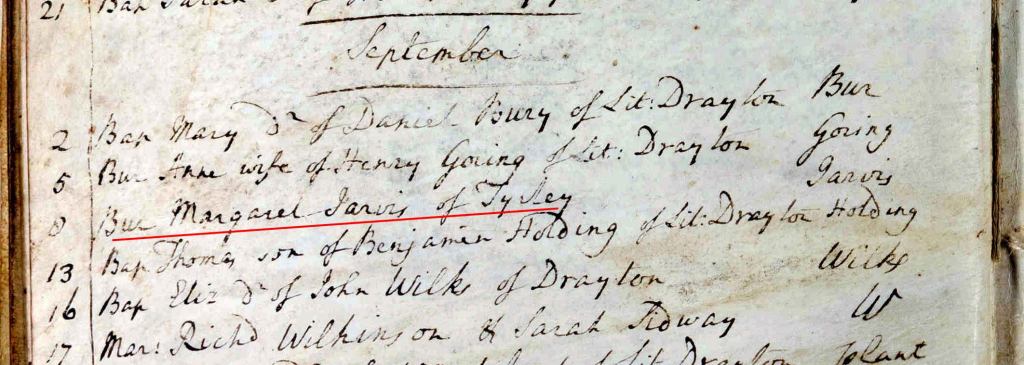 21 Bap Sarah
September
2 Bap Mary Dr of Daniel Bury of Lit: Drayton Bur
5 Bur Anne wife of Henry Goring of Lit: Drayton Goring
8 Bur Margaret Jarvis of Tyrley Jarvis
13 Bap Thomas son of Benjamin Holding of Lit: Drayton Holding
16 Bap Eliz Dr of John Wilks of Drayton Wilks
17 Mar: Richd Wilkinson & Sarah Tidway W
of Lit: Drayton